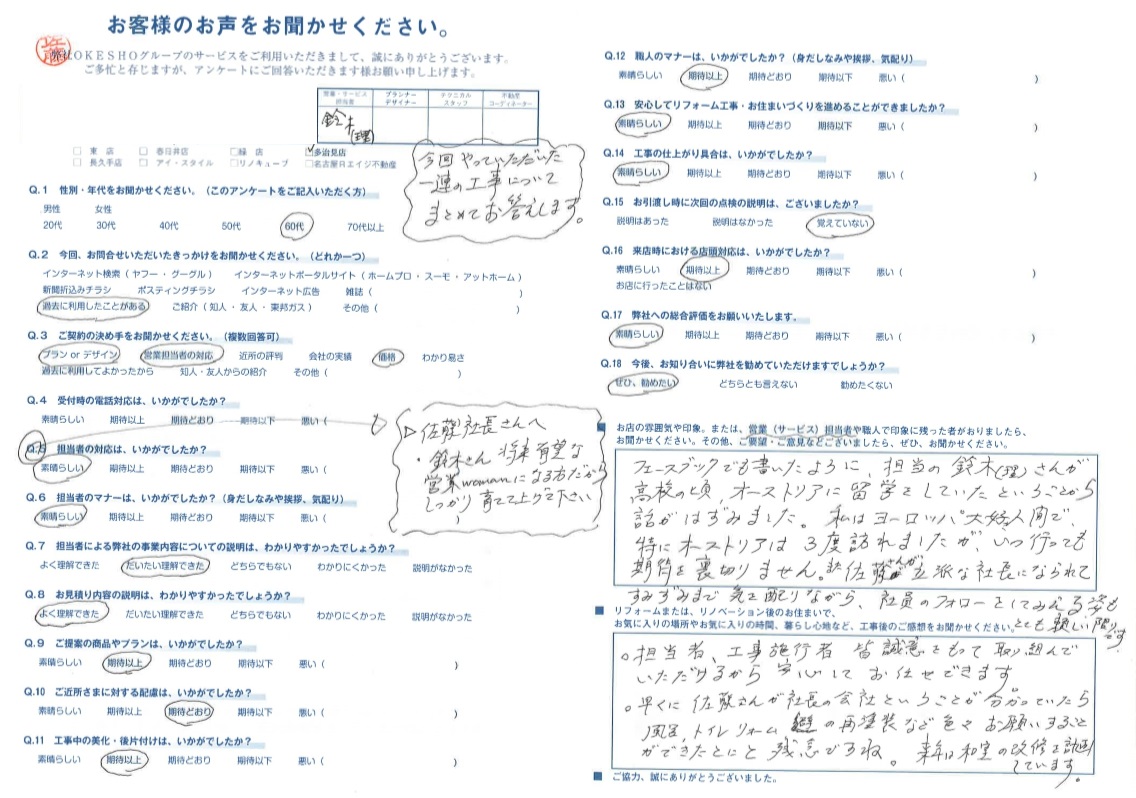 お客様のお声をお聞かせください。
弊社OKESHOグループのサービスをご利用いただきまして、誠にありがとうございます。
ご多忙と存じますが、アンケートにご回答いただきます様お願い申し上げます。
営業・サービス担当者 プランナーデザイナー テクニカルスタッフ 不動産コーディネーター
鈴木(理)
□ 東 店 □ 春日井店 □緑 店 ☑多治見店
□ 長久手店 □ アイ・スタイル □リノキューブ □名古屋Rエイジ不動産
今回やっていただいた
一連の工事について
まとめてお答えします。
Q.1 性別・年代をお聞かせください。(このアンケートをご記入いただく方)
男性 女性
20代 30代 40代 50代 60代 70代以上
Q.2 今回、お問合せいただいたきっかけをお聞かせください。(どれか一つ)
インターネット検索(ヤフー・グーグル) インターネットポータルサイト(ホームプロ・スーモ・アットホーム)
新聞折込みチラシ ポスティングチラシ インターネット広告 雑誌( )
過去に利用したことがある ご紹介(知人・友人・東邦ガス) その他( )
Q.3 ご契約の決め手をお聞かせください。(複数回答可)
プラン or デザイン 営業担当者の対応 近所の評判 会社の実績 価格 わかり易さ
過去に利用してよかったから 知人・友人からの紹介 その他( )
Q.4 受付時の電話対応は、いかがでしたか?
素晴らしい 期待以上 期待どおり 期待以下 悪い(
Q.5 担当者の対応は、いかがでしたか?
素晴らしい 期待以上 期待どおり 期待以下 悪い(
▷佐藤社長さんへ
・鈴木さん 将来有望な
営業womanになる方だから
しっかり育てて上げて下さい
Q.6 担当者のマナーは、いかがでしたか?(身だしなみや挨拶、気配り)
素晴らしい 期待以上 期待どおり 期待以下 悪い( )
Q.7 担当者による弊社の事業内容についての説明は、わかりやすかったでしょうか?
よく理解できた だいたい理解できた どちらでもない わかりにくかった 説明がなかった
Q.8 お見積り内容の説明は、わかりやすかったでしょうか?
よく理解できた だいたい理解できた どちらでもない わかりにくかった 説明がなかった
Q.9 ご提案の商品やプランは、いかがでしたか?
素晴らしい 期待以上 期待どおり 期待以下 悪い( )
Q.10 ご近所さまに対する配慮は、いかがでしたか?
素晴らしい 期待以上 期待どおり 期待以下 悪い( )
Q.11 工事中の美化・後片付けは、いかがでしたか?
素晴らしい 期待以上 期待どおり 期待以下 悪い( )
Q.12 職人のマナーは、いかがでしたか?(身だしなみや挨拶、気配り)
素晴らしい 期待以上 期待どおり 期待以下 悪い( )
Q.13 安心してリフォーム工事・お住まいづくりを進めることができましたか?
素晴らしい 期待以上 期待どおり 期待以下 悪い( )
Q.14 工事の仕上がり具合は、いかがでしたか?
素晴らしい 期待以上 期待どおり 期待以下 悪い( )
Q.15 お引渡し時に次回の点検の説明は、ございましたか?
説明はあった 説明はなかった 覚えていない
Q.16 来店時における店頭対応は、いかがでしたか?
素晴らしい 期待以上 期待どおり 期待以下 悪い( )
お店に行ったことはない
Q.17 弊社への総合評価をお願いいたします。
素晴らしい 期待以上 期待どおり 期待以下 悪い( )
Q.18 今後、お知り合いに弊社を勧めていただけますでしょうか?
ぜひ、勧めたい どちらとも言えない 勧めたくない
■ お店の雰囲気や印象。または、営業(サービス)担当者や職人で印象に残った者がおりましたら、
お聞かせください。その他、ご要望・ご意見などございましたら、ぜひ、お聞かせください。
フェースブックでも書いたように、担当の鈴木(理)さんが
高校の頃、オーストリアに留学をしていたということから
話がはずみました。私はヨーロッパ大好人間で、
特にオーストリアは3度訪れましたが、いつ行っても
期待を裏切りません。又佐藤さんが立派な社長になられて
すみずみまで気を配りながら、社員のフォローをしてみえる姿も
とても頼しい限りです
■ リフォームまたは、リノベーション後のお住まいで、
お気に入りの場所やお気に入りの時間、暮らし心地など、工事後のご感想をお聞かせください。
○担当者、工事施行者 皆誠意をもって取り組んで
いただけるから安心してお任せできます
○早くに佐藤さんが社長の会社ということが分かっていたら
風呂、トイレリフォーム の再塗装など色々お願いすること
ができたのにと残念ですね。来年は和室の改修を計画
しています。
■ ご協力、誠にありがとうございました。